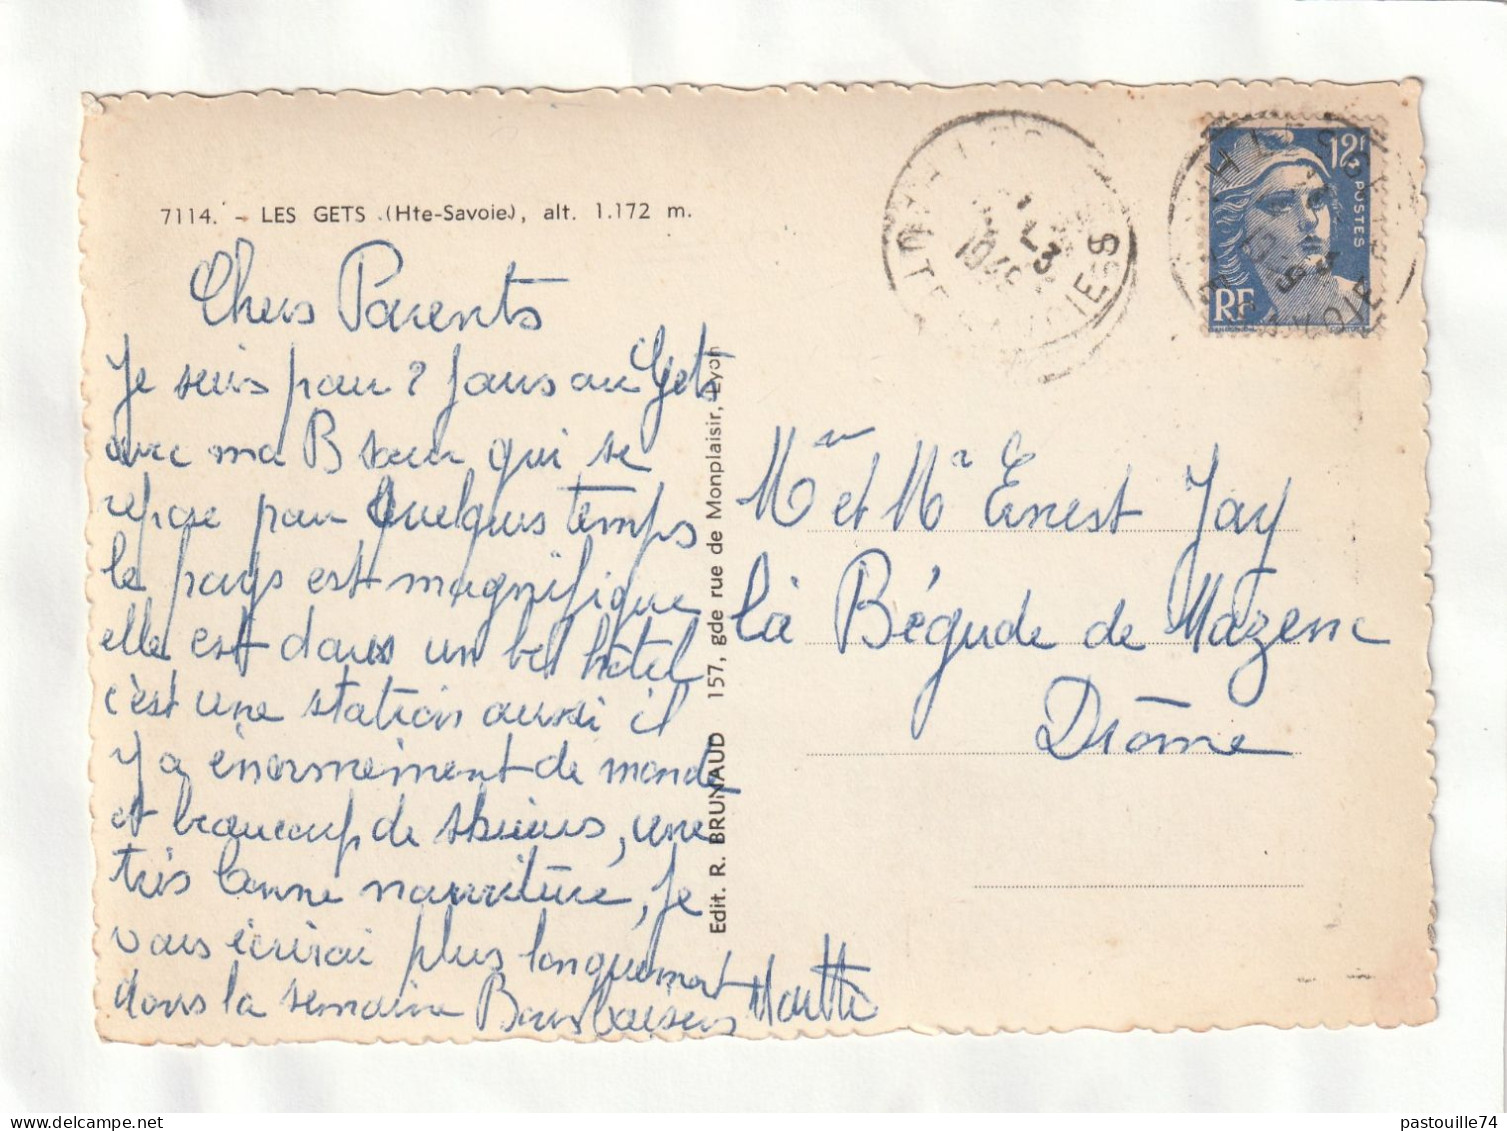 7114. - LES GETS (Hte-Savoie), alt. 1.172 m.
Chers Parents
Je suis pour 2 jours au Gets
avec ma B sœur qui se
repose pour quelques temps
le pays est magnifique
elle est dans un bel hôtel
c'est une station aussi il
y a énormement de monde
et beaucoup de skieurs, une
très bonne nourriture, je
vous écrirai plus longuement
dans la semaine Bons baisers Marthe
Edit. R. BRUNAUD 157, gde rue de Monplaisir, Lyon
12F
POSTES
RF
HAUTE SAVOIE
1949
Mme et Mr Ernest Jay
la Bégude de Mazenc
Drôme
pastouille74